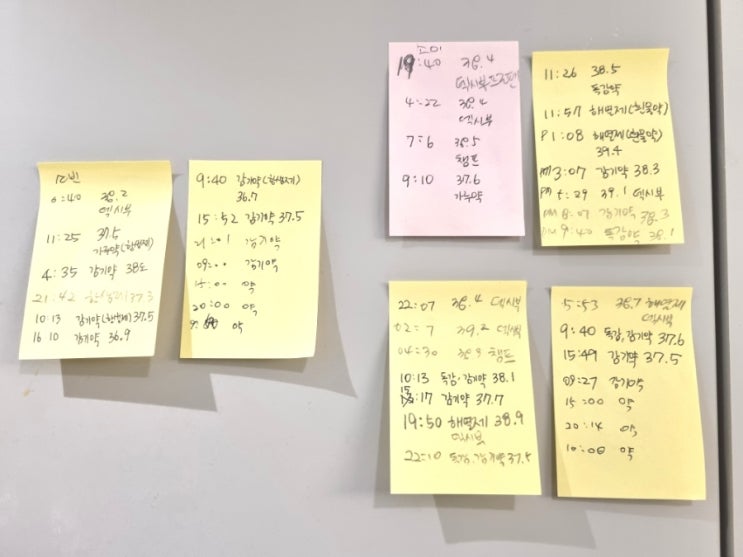 6:40 38.2
덱시부
11:25 37.5
가루약(항생제)
4:35 감기약 38도
21:42 37.3
10:13 감기약(항생제) 37.5
16 10 감기약 36.9
9:40 감기약(항생제)
36.7
15:52 감기약 37.5
21:01 감기약
09:00 감기약
15:00 약
20:00 약
약
소이
19:40 38.4
덱시부프로펜
4:22 38.4
덱시부
7:6 38.5
챔프
9:10 37.6
가루약
11:26 38.5
독감약
11:57 해열제(한물약)
P1:08 해열제(한물약)
39.4
PM 3:07 감기약 38.3
PM 39.1 덱시부
PM 8:07 감기약 38.3
PM 9:40 독감약 38.1
22:07 38.4 덱시부
02:7 39.2 덱시부
04:30 38.9 챔프
10:13 독감,감기약 38.1
15:17 감기약 37.7
19:50 해열제 38.9
덱시부
22:10 독감,감기약 37.5
5:53 38.7 해열제
덱시부
9:40 독감,감기약 37.6
15:49 감기약 37.5
09:27 감기약
15:00 약
20:14 약
10:00 약